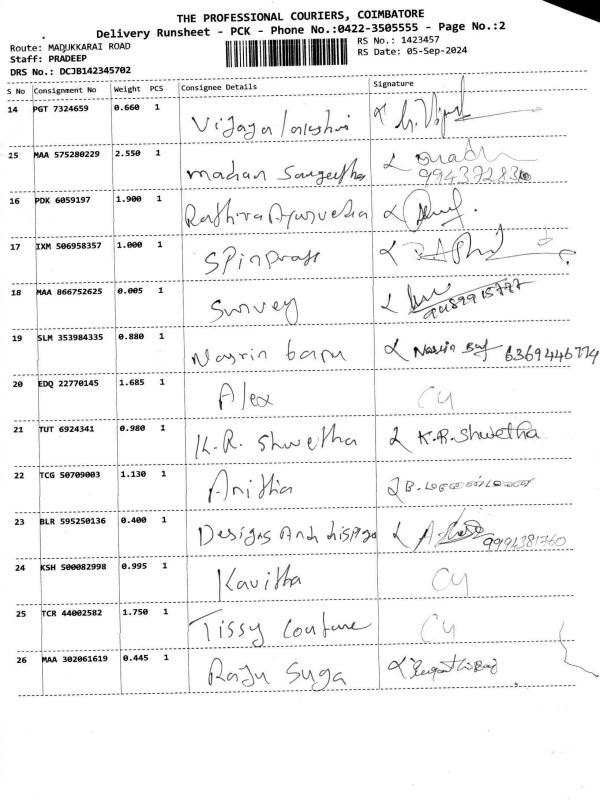 THE PROFESSIONAL COURIERS, COIMBATORE
Delivery Runsheet - PCK - Phone No.:0422-3505555 - Page No.:2
Route: MADUKKARAI ROAD RS No.: 1423457
Staff: PRADEEP RS Date: 05-Sep-2024
DRS No.: DCJB142345702
S No Consignment No Weight PCS Consignee Details Signature
14 PGT 7324659 0.660 1 Vijaya lakshmi
15 MAA 575280229 2.550 1 madhan Sangeetha
16 PDK 6059197 1.900 1 Rathira Ayurveda
17 IXM 506958357 1.000 1
18 MAA 866752625 0.005 1 Survey
19 SLM 353984335 0.880 1 Nasrin banu 6369446774
20 EDQ 22770145 1.685 1 Alex
21 TUT 6924341 0.980 1 K.R. Shwetha K.R.Shwetha
22 TCG 50709003 1.130 1 Anitha
23 BLR 595250136 0.400 1 Designs And 9994381760
24 KSH 500082998 0.995 1 Kavitha
25 TCR 44002582 1.750 1 Tissy Couture
26 MAA 302061619 0.445 1 Raju Suga